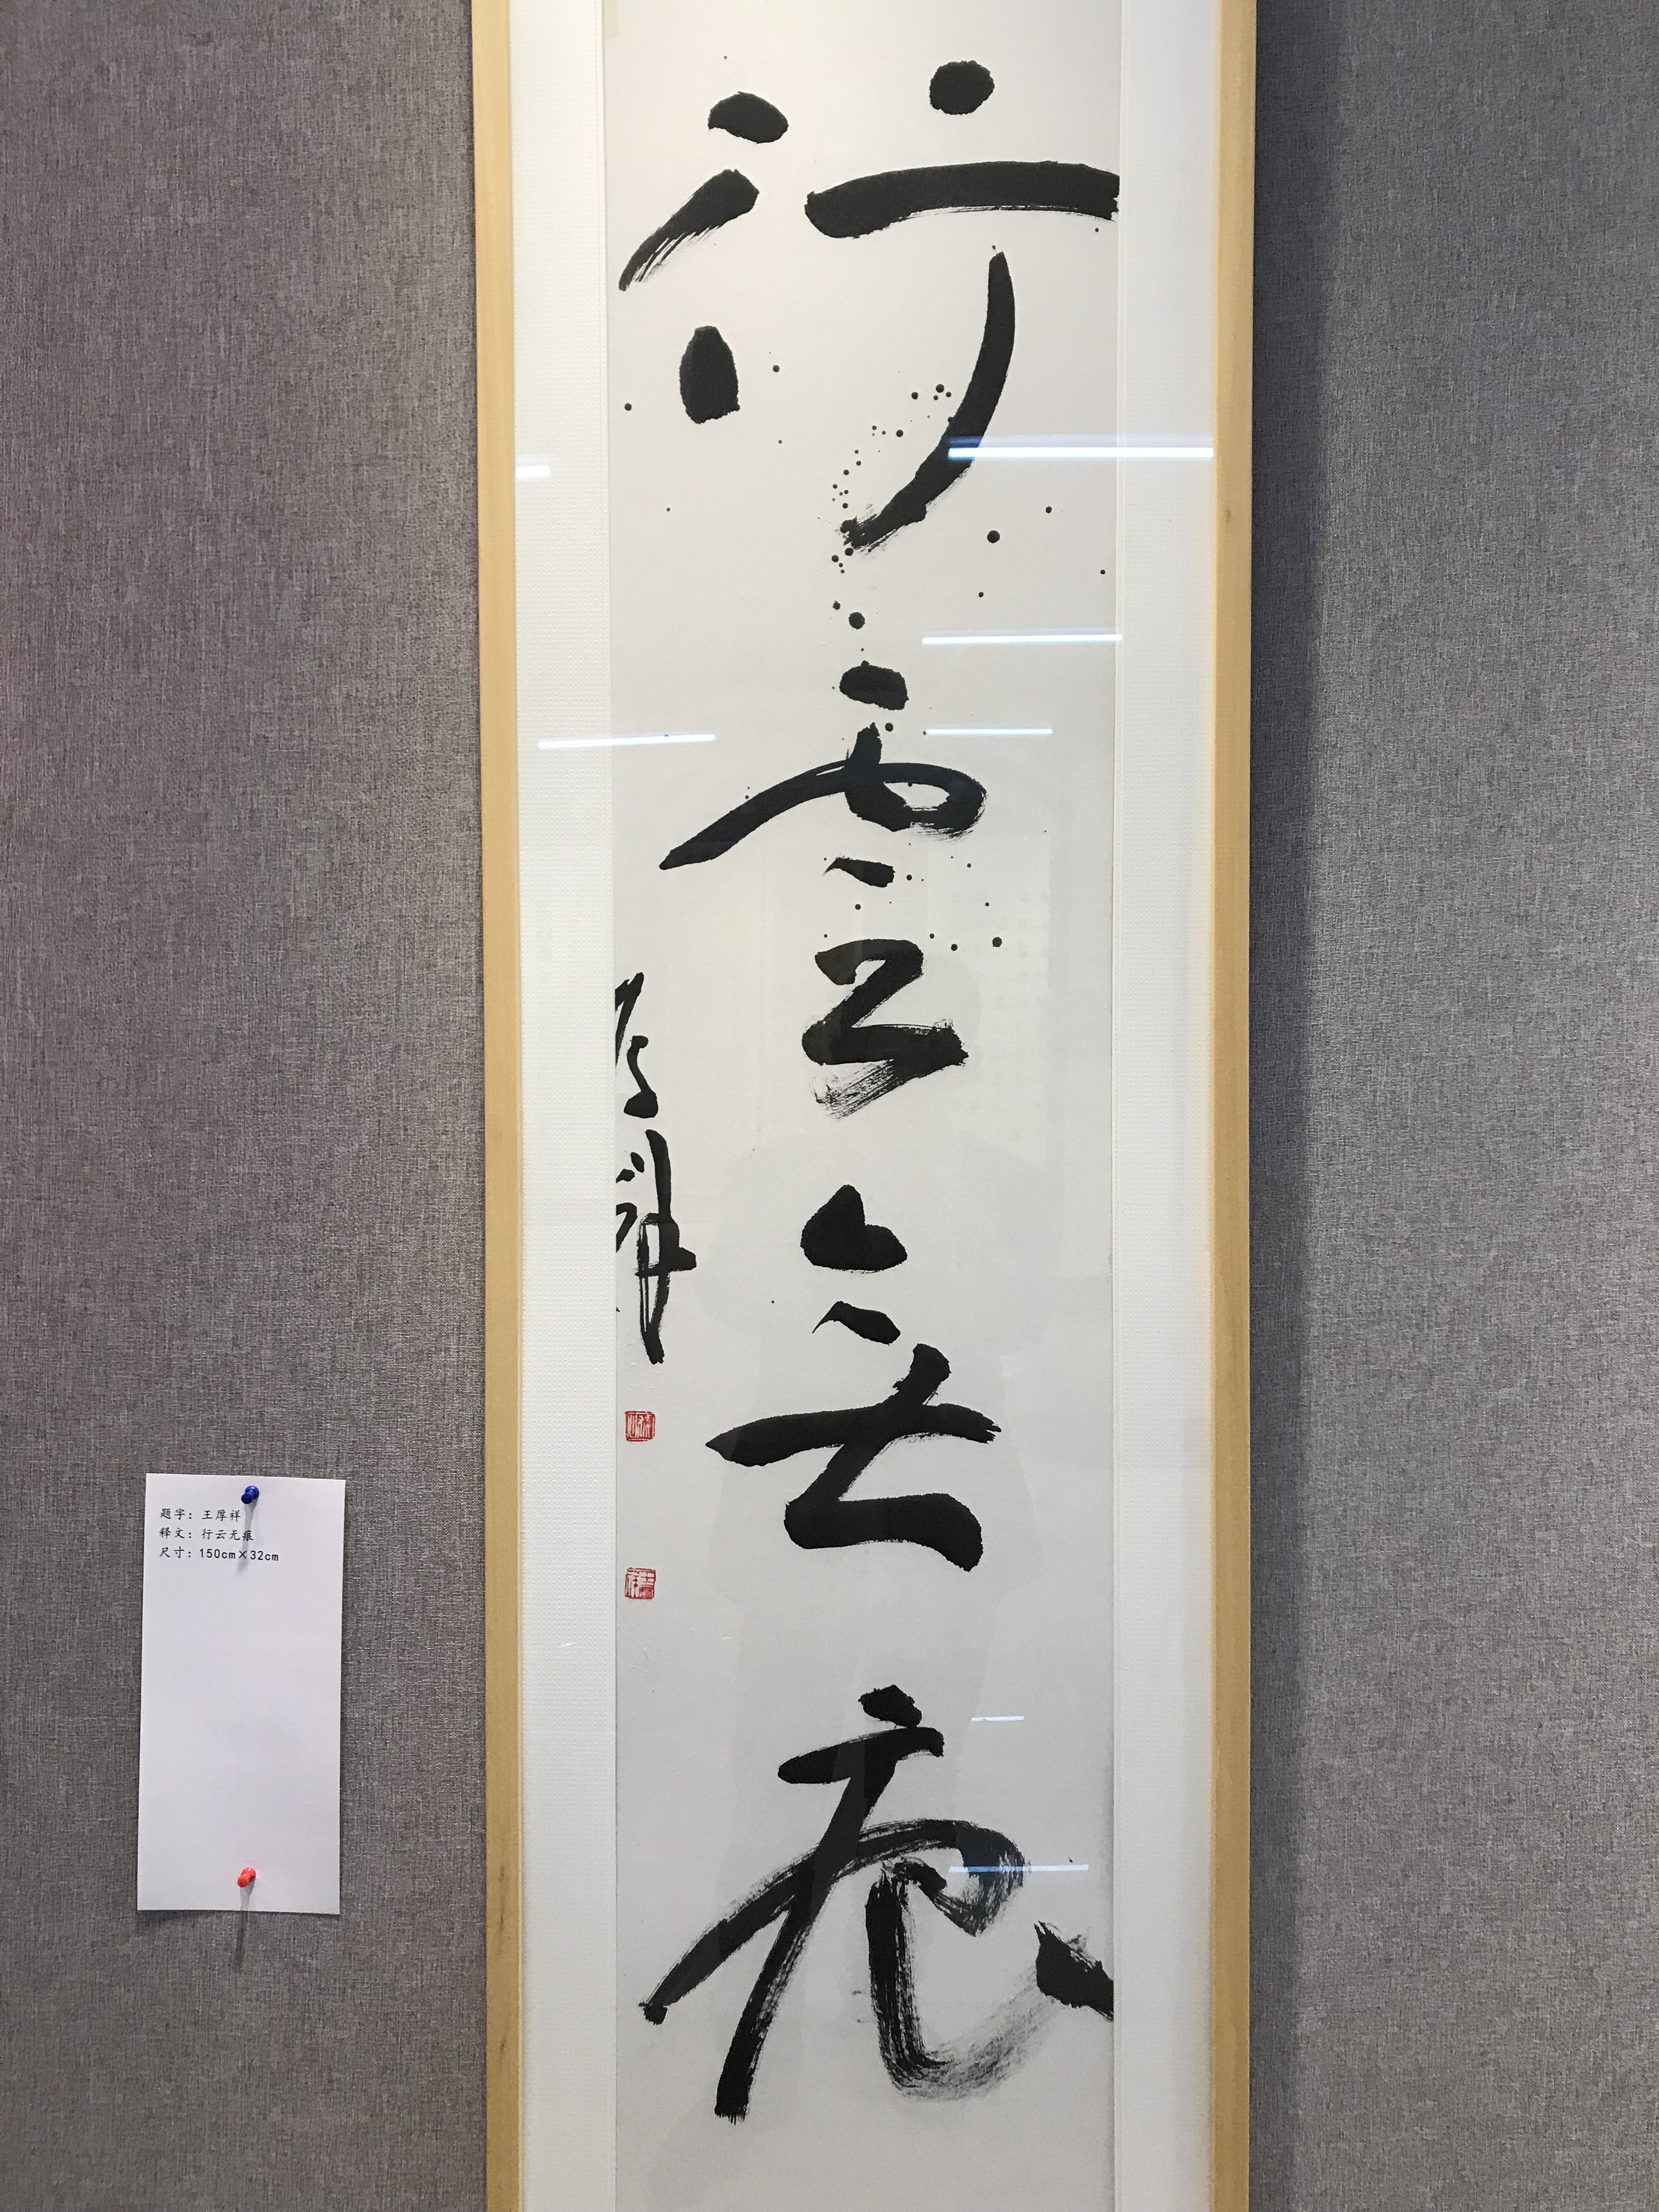 行雲無痕
厚祥
题字：王厚祥
释文：行云无痕
尺寸：150cm×32cm